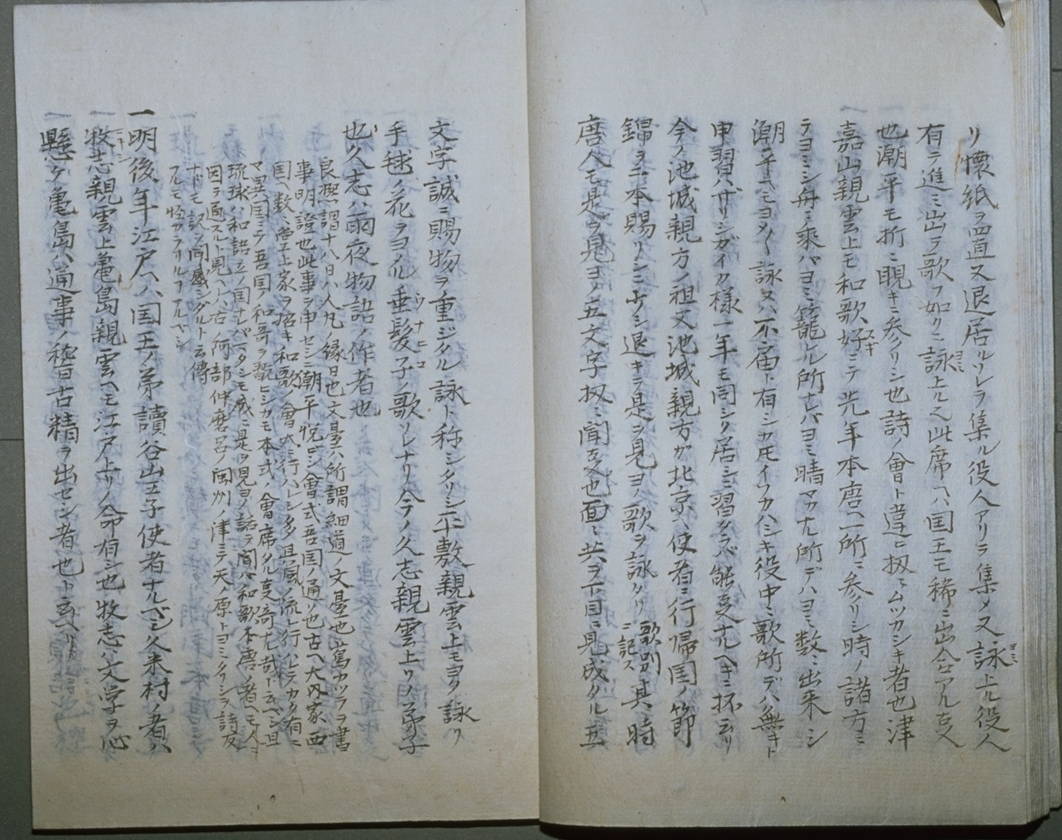 リ懐紙ヲ置又退居ルソレヲ集ル役人アリテ集メ又詠上ル役人
有テ進ミ出テ歌ヲ如ク詠上ル也此席ヘハ国王モ稀ニ出会アル支
也潮平モ折ニ覗キニ参リシ也詩ノ會ト違ヒ扱ヒムツカシキ者也津
嘉山親雲上モ和歌好ニテ先年本唐一所ニ参リシ時ノ諸方ニ
テヨミシ舟ニ乗バヨミ籠ル所ナレバヨミ晴マツナル所デハヨミ数ニ出来シ
潮平ナドニモヨメ〱詠ヌハ不届ト有シカ𪜈イツカハシキ役中ニ歌所デハ無キト
申習ハザリシガイク様一年モ同シク居ニ習タラバ能支ナルベキニ杯云リ
今ノ池城親方ノ祖父池城親方ガ北京ヘ使者ニ行帰国ノ節
錦ヲ二本賜リシニ少シ退キテ是ヲ見ヨノ歌ヲ詠タリ歌別ニ其時ニ記ス
唐人モ是ヲ見ヨノ五文字扱ニ聞支也面ニ共ヲ下目ニ見成タル五
文字誠ニ賜物ヲ重ジタル詠ト称シタリシ平敷親雲上モヨク詠リ
手毬ノ花ヲヨメル垂髪子ノ歌ソレナリ今ノ久志親雲上ハノ弟子
也久志ハ雨夜物語ノ作者也
良熙謂十八日ハ人丸ノ縁日也文臺ハ所謂細道ノ文臺也寫カツラヲ書
事明證也此事ヲ申セシ潮平悦ビシ會式吾国ノ通ソ也古ヘ大内家ハ西
国ヘ数ニ帝王士家ヲ招キ和歌ノ會大ニ行ハレシ多其風ノ流レ行ハレテカク有ニ
マ異国ニテ吾国ノ和哥ヲ翫ヒシカモ本式ノ會席ヲ見支奇ナル哉ト云ベシ且
琉球ハ和語立ノ国ナレバサシモ感ニ是ヲ見ヨノ詰ヲ聞ハ和歌本唐ノ者ヘモ人ニ
因テ通スルト見ヘタリ古ノ何部仲麿呂ノ聞州ノ津ニテ天ノ原トヨミタレシヲ詩友
ナドモ訳ヲ聞感シタルト云傳
フルモ怪カラサルフナルヤシ
一明後年江戸ヘハ国王ノ弟讀谷山王子使者ナルベシ久米村ノ者ハ
牧志親雲上亀島親雲ヘモ江戸上リノ命有シ也牧志ハ文学ヲ心
懸ケ亀島ハ通事ノ稽古精ヲ出セシ者也ト云ヘリ